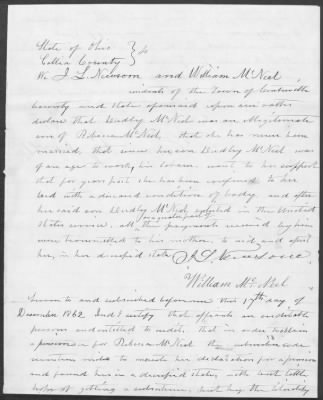 State of Ohio
Gallia County } ss
We J. L. Newsom and William McNeel
residents of the Town of Centerville
County and State aforesaid upon our oaths
declare that Dudley McNeel was an illegitimate
son of Rebecca McNeel, that she has never been
married, that since her son Dudley McNeel was
of an age to work, his went to her support
that for years past she has been confined to her
bed with a diseased condition of body and after
her said son Dudley McNeel enlisted in the United
States service all the payments received by him
were transmitted to his mother, to aid and assist
her, in her diseased state
J. L. Newsom
William McNeel
Sworn to and subscribed before me this 17th day of
December 1862 And I certify that affiants are creditable
persons and entitled to credit, that in order to obtain
a pension for Rebecca McNeel the
her declaration for a pension
and found her in a diseased state, with but little
hope of getting